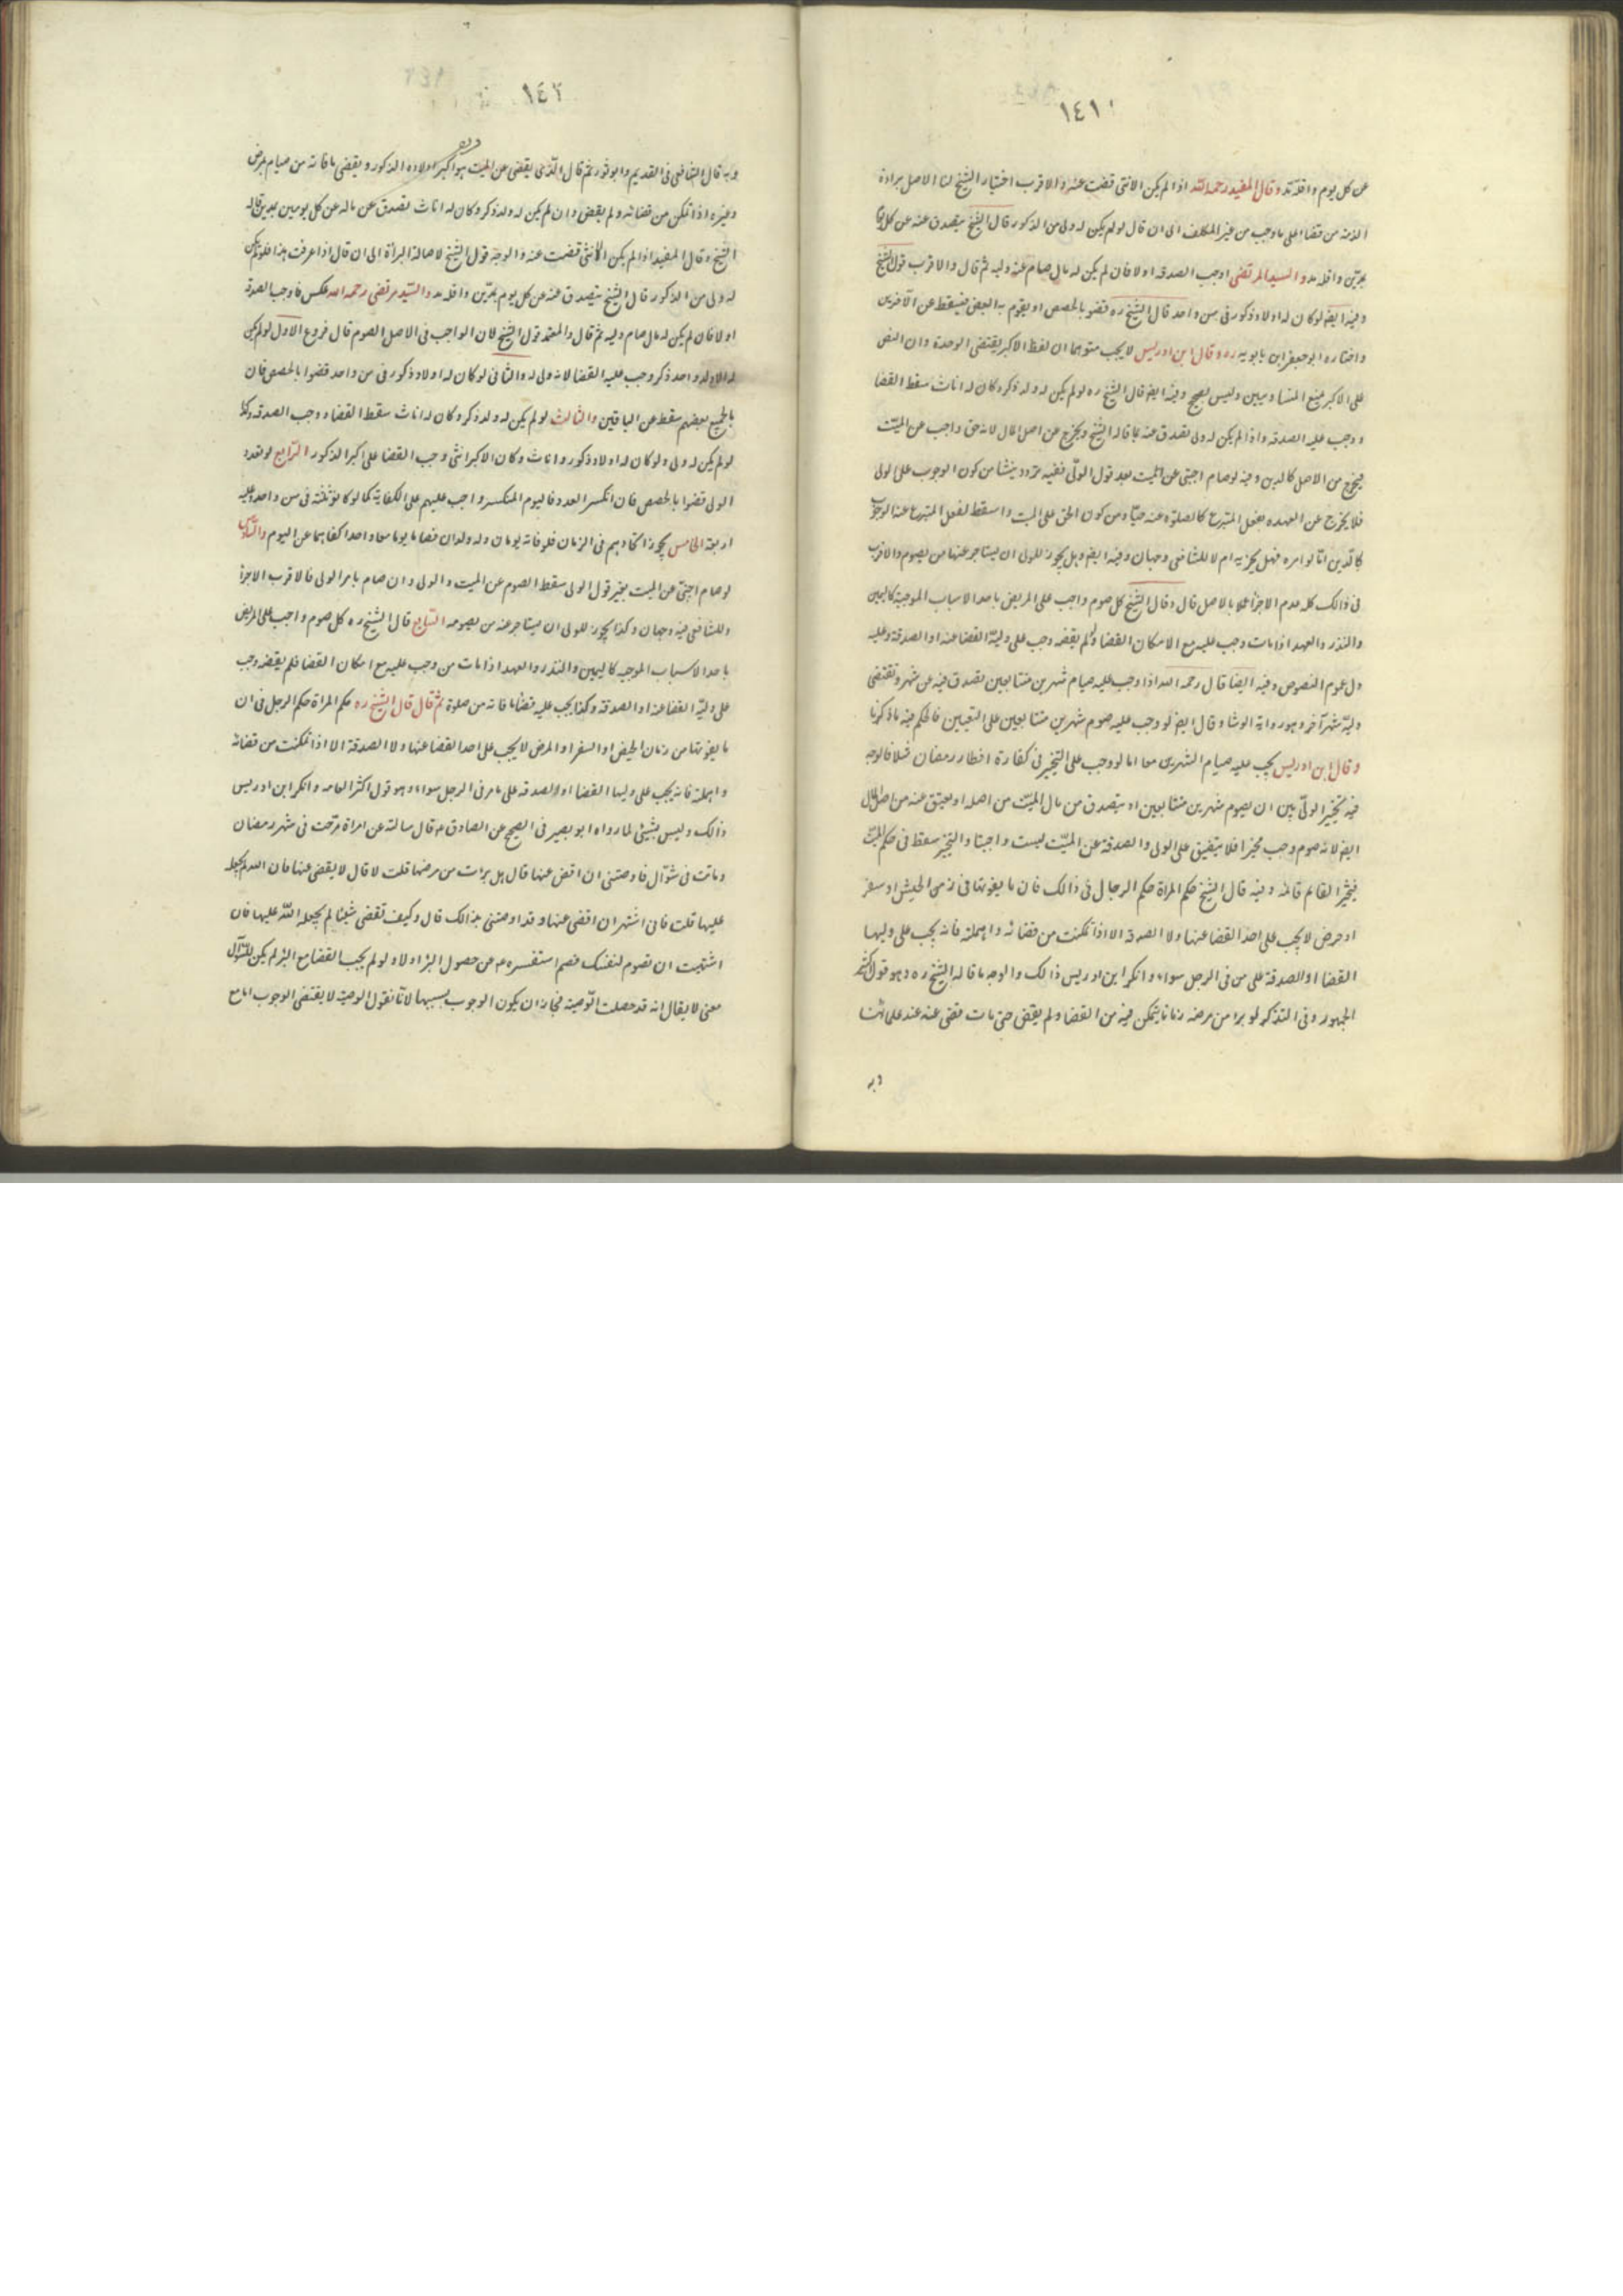 ١٤١
عن كل يوم واقله مد وقال المفيد رحمه الله اذا لم يكن الا نثى قضت عنه والاقرب اختيار الشيخ لنا الاصل براءة
الذمة من قضاء على ما وجب من غير المكلف الى ان قال لو لم يكن له ولى من الذكور قال الشيخ يتصدق عنه عن كل يوم
بمدين واقله مد والسيد المرتضى اوجب الصدقه اولا فان لم يكن له مال صام عنه وليه ثم قال والاقرب قول الشيخ
وفيه ايضا لو كان له اولاد ذكور فى سن واحد قال الشيخ ره قضوا بالحصص او يقوم به البعض فيسقط عن الآخرين
واختاره ابو جعفر ابن بابويه ره وقال ابن ادريس لا يجب متوهما ان لفظ الاكبر يقتضى الوحدة وان النص
على الاكبر فيمنع المتساويين وليس بصحيح وفيه ايضا قال الشيخ ره لو لم يكن له ولد ذكر وكان له اناث سقط القضا
ووجب عليه الصدقه واذا لم يكن له ولى تصدق عنه بما قاله الشيخ ويخرج عن اصل المال لانه حق واجب عن الميت
فيخرج من الاصل كالدين وفيه لو صام اجنبى عن الميت بعد قول الولى ففيه تردد ينشا من كون الوجوب على الولى
فلا يخرج عن العهده بفعل المتبرع كالصلوة عنه حيا ومن كون الحق على الميت واسقط لفعل المتبرع عنه الوجوب
كالدين اما لو امره فهل يجزيه ام لا للشافعى وجهان وفيه ايضا وهل يجوز للولى ان يستاجر عنها من يصوم والاقرب
فى ذالك كله عدم الاجزأ عملا بالاصل قال وقال الشيخ كل صوم واجب على المريض باحد الاسباب الموجبة كاليمين
والنذر والعهد اذا مات وجب عليه مع الامكان القضا ولم يقضه وجب على وليه القضا عنه او الصدقة وعليه
دل عموم النصوص وفيه ايضا قال رحمه الله اذا وجب عليه صيام شهرين متتابعين تصدق فيه عن شهر وتقتضى
وليه شهر آخر وهو رواية الوشا وقال ايضا لو وجب عليه صوم شهرين متتابعين على التعيين فالحكم فيه ما ذكرنا
وقال ابن ادريس يجب عليه صيام الشهرين معا اما لو وجب على التخيير فى كفارة افطار رمضان فلا فالوجه
فيه تخيير الولى بين ان يصوم شهرين متتابعين او يتصدق من مال الميت من اصله او يعتق عنه من اصل المال
ايضا لانه صوم وجب مخيرا فلا يتضيق على الولى والصدقة عن الميت ليست واجبتا والتخيير سقط فى حكم الميت
فيخير القايم قالمه وفيه قال الشيخ حكم المراة حكم الرجال فى ذالك فان ما يفوتها فى زمن الحيض او سفر
او مرض لا يجب على احد القضا عنها ولا الصدقه الا اذا تمكنت من قضائه واهملته فانه يجب على وليها
القضا او الصدقة على من فى الرجل سواء وانكر ابن ادريس ذالك والوجه ما قاله الشيخ ره وهو قول اكثر
الجمهور وفى التذكره لو برا من مرضه زمانا يتمكن فيه من القضا ولم يقضى حتى مات قضى عنه عند علمائنا
وبه
١٤٢
وبه قال الشافعى فى القديم وابو ثور ثم قال الذى يقضى عن الميت هو اكبر اولاده الذكور ويقضى ما فاته من صيام بمرض
وغيره اذا تمكن من قضائه ولم يقض وان لم يكن له ولد ذكر وكان له اناث تصدق عن ماله عن كل يومين بمدين قاله
الشيخ وقال المفيد اذا لم يكن الا نثى قضت عنه والوجه قول الشيخ لاصالة البراة الى ان قال اذا عرفت هذا فلو لم يكن
له ولى من الذكور قال الشيخ يتصدق عنه عن كل يوم بمدين واقله مد والسيد مرتضى رحمه الله عكس فاوجب الصدقة
اولا فان لم يكن له مال صام وليه ثم قال والمعتمد قول الشيخ لان الواجب فى الاصل الصوم قال فروع الاول لو لم يكن
له الا ولد واحد ذكر وجب عليه القضا لانه ولى له والثانى لو كان له اولاد ذكور فى سن واحد قضوا بالحصص فان
بالجميع بعضهم سقط عن الباقين والثالث لو لم يكن له ولد ذكر وكان له اناث سقط القضا ووجب الصدقه وكذا
لو لم يكن له ولى ولو كان له اولاد ذكور واناث وكان الاكبر انثى وجب القضا على اكبر الذكور الرابع لو تعدد
الولى قضوا بالحصص فان انكسر العدد فاليوم المنكسر واجب عليهم على الكفاية كما لو كانوا ثلثة فى سن واحد وعليه
اربعة الخامس يجوز اتحادهم فى الزمان فلو فاته يومان وله ولدان فصاما يوما معا واحدا كفاهما عن اليوم والسادس
لو صام اجنبى عن الميت بغير قول الولى سقط الصوم عن الميت والولى وان صام بامر الولى فالاقرب الاجزأ
وللشافعى فيه وجهان وكذا يجوز للولى ان يستاجر عنه من يصومه السابع قال الشيخ ره كل صوم واجب على المريض
باحد الاسباب الموجبه كاليمين والنذر والعهد اذا مات من وجب عليه مع امكان القضا فلم يقضه وجب
على وليه القضا عنه او الصدقة وكذا يجب عليه قضا ما فاته من صلوة ثم قال قال الشيخ ره حكم المراة حكم الرجل فى ان
ما يفوتها من زمان الحيض او السفر او المرض لا يجب على احد القضا عنها ولا الصدقة الا اذا تمكنت من قضائه
واهملته فانه يجب على وليها القضا او الصدقه على ما مر فى الرجل سواء وهو قول اكثر العامه وانكر ابن ادريس
ذالك وليس بشيئى لما رواه ابو بصير فى الصحيح عن الصادق ع قال سالته عن امراة مرضت فى شهر رمضان
وماتت فى شوال فاوصتنى ان اقضى عنها قال هل برات من مرضها قلت لا قال لا يقضى عنها فان الله لم يجعله
عليها قلت فانى اشتهى ان اقضى عنها وقد اوصتنى بذالك قال وكيف تقضى شيئا لم يجعله الله عليها فان
اشتهيت ان تصوم لنفسك فصم استفسره ع عن حصول البرا اولا ولو لم يجب القضا مع البرا لم يكن للسوال
معنى لا يقال انه قد حصلت الوصية فجاز ان يكون الوجوب بسببها لانا نقول الوصية لا يقتضى الوجوب اما مع